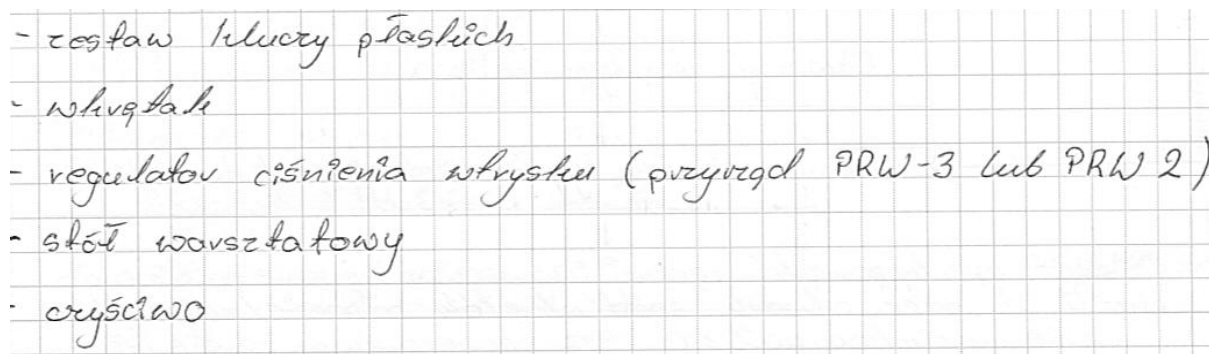 - zestaw kluczy płaskich
- wkrętak
- regulator ciśnienia wtrysku (przyrząd PRW-3 lub PRW 2)
- stół warsztatowy
- czyściwo